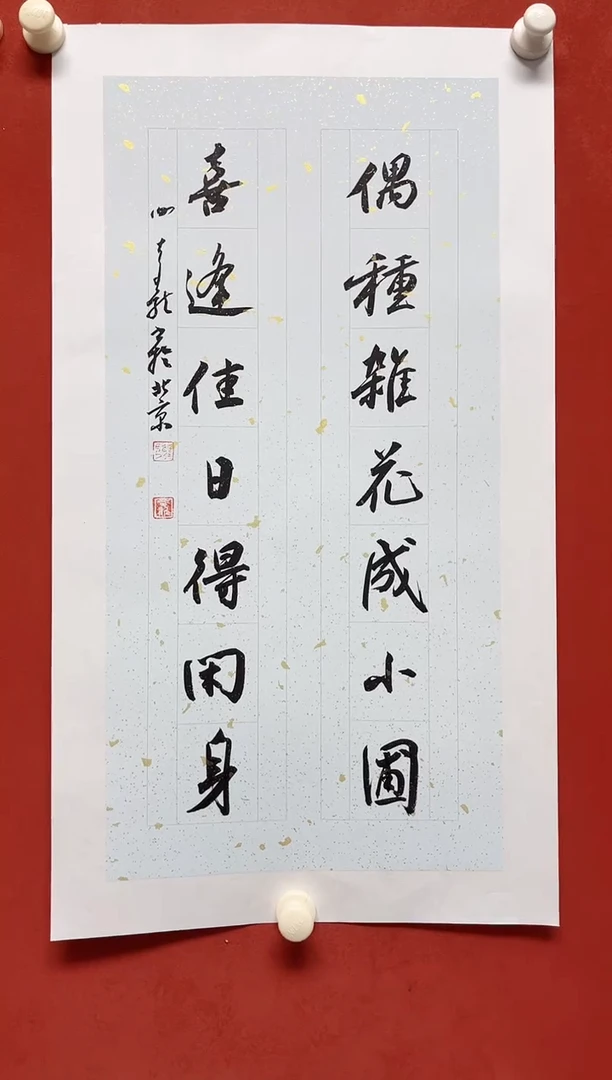 偶種雜花成小圃
喜逢佳日得閑身
北京